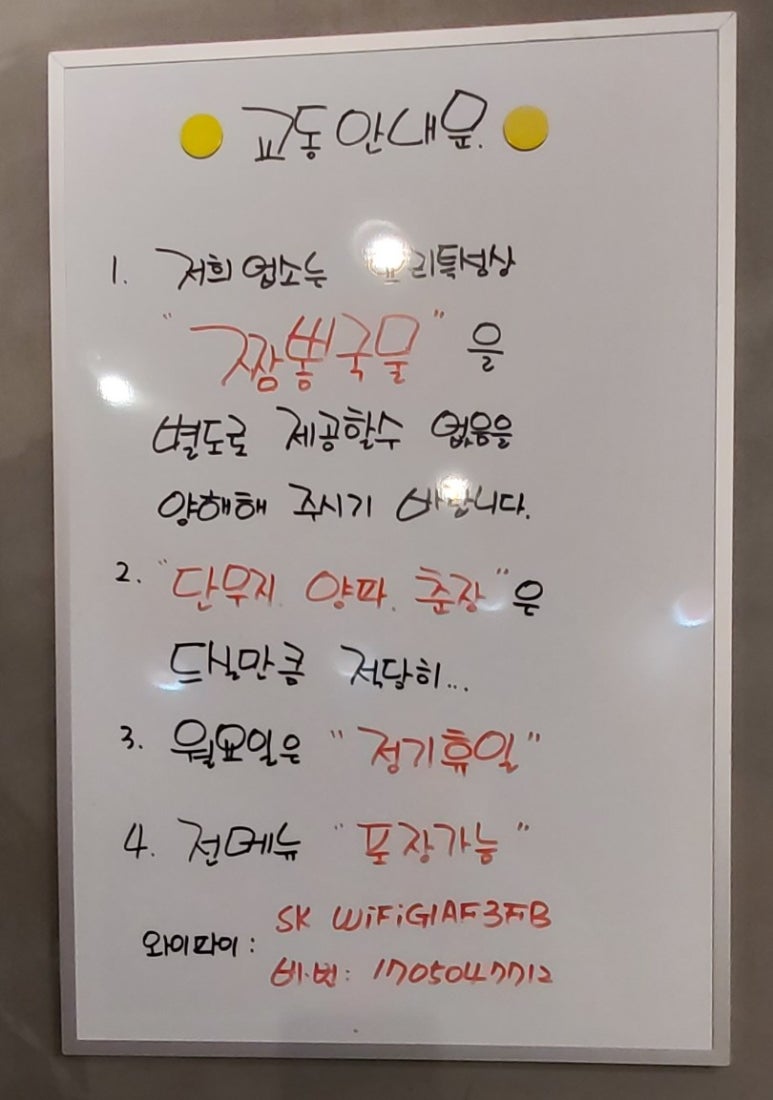 교동안내문.
1. 저희 업소는 요리특성상
"짬뽕국물"을
별도로 제공할수 없음을
양해해 주시기 바랍니다.
2. "단무지. 양파. 춘장"은
드실만큼 적당히...
3. 월요일은 "정기휴일"
4. 전메뉴 "포장가능"
와이파이:
SK WiFiG1AF3FB
비.번: 1705047712